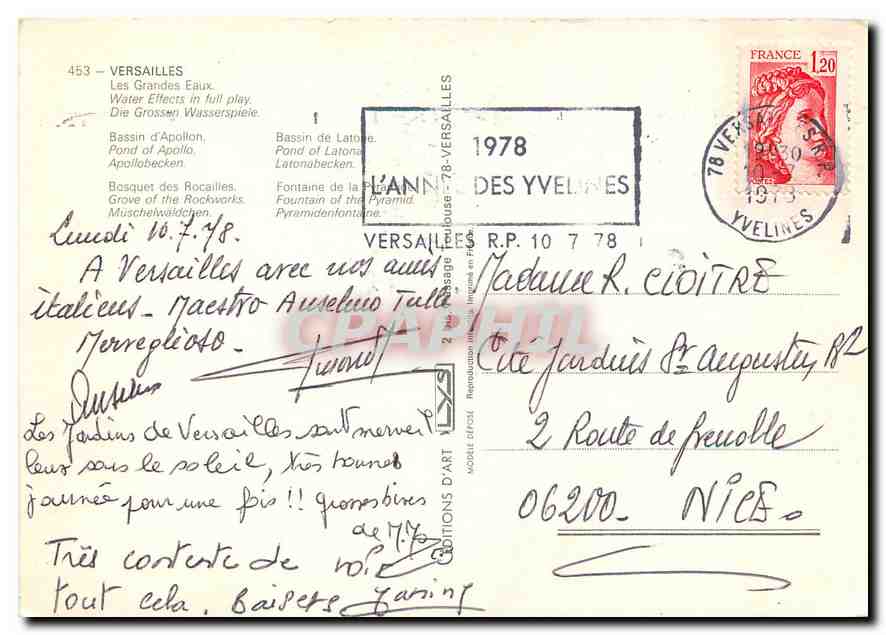 453 – VERSAILLES
Les Grandes Eaux.
Water Effects in full play.
Die Grossen Wasserspiele.
Bassin d'Apollon.
Pond of Apollo.
Apollobecken.
Bassin de Latone.
Pond of Latona.
Latonabecken.
Bosquet des Rocailles.
Grove of the Rockworks.
Müschelwäldchen.
Fontaine de la Pyramide.
Fountain of the Pyramid.
Pyramidenfontaine.
Lundi 10.7.78.
A Versailles avec nos amis
italiens - Maestro Anselmo Tulli
Merveglioso -
Anselmo
Les Jardins de Versailles sont merveil
leux sous le soleil, très bonnes
journée pour une fois !! grosses bises
de M.Jo
Très contente de voir
tout cela. Baisers
ÉDITIONS D'ART LYS
2 bis, Passage Toulouse - 78-VERSAILLES
MODÈLE DÉPOSÉ Reproduction interdite. Imprimé en France.
1978
L'ANNÉE DES YVELINES
VERSAILLES R.P. 10 7 78
FRANCE
1,20
POSTES
78 VERSAILLES R.P.
30
1978
YVELINES
Madame R. CLOITRE
Cité Jardins St Augustin, B2
2 Route de Grenoble
06200 - NICE -
CPAPHIL